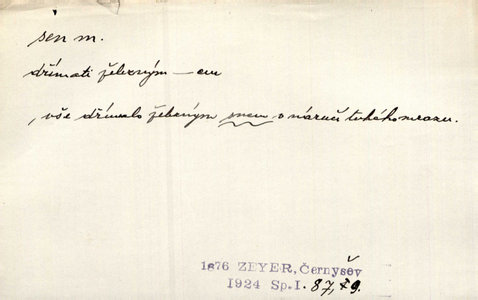 sen m.
dřímati železným — em
, vše dřímalo železným snem v náručí tuhého mrazu.
1876 ZEYER, Černyšev
1924 Sp.I. 87, 79.